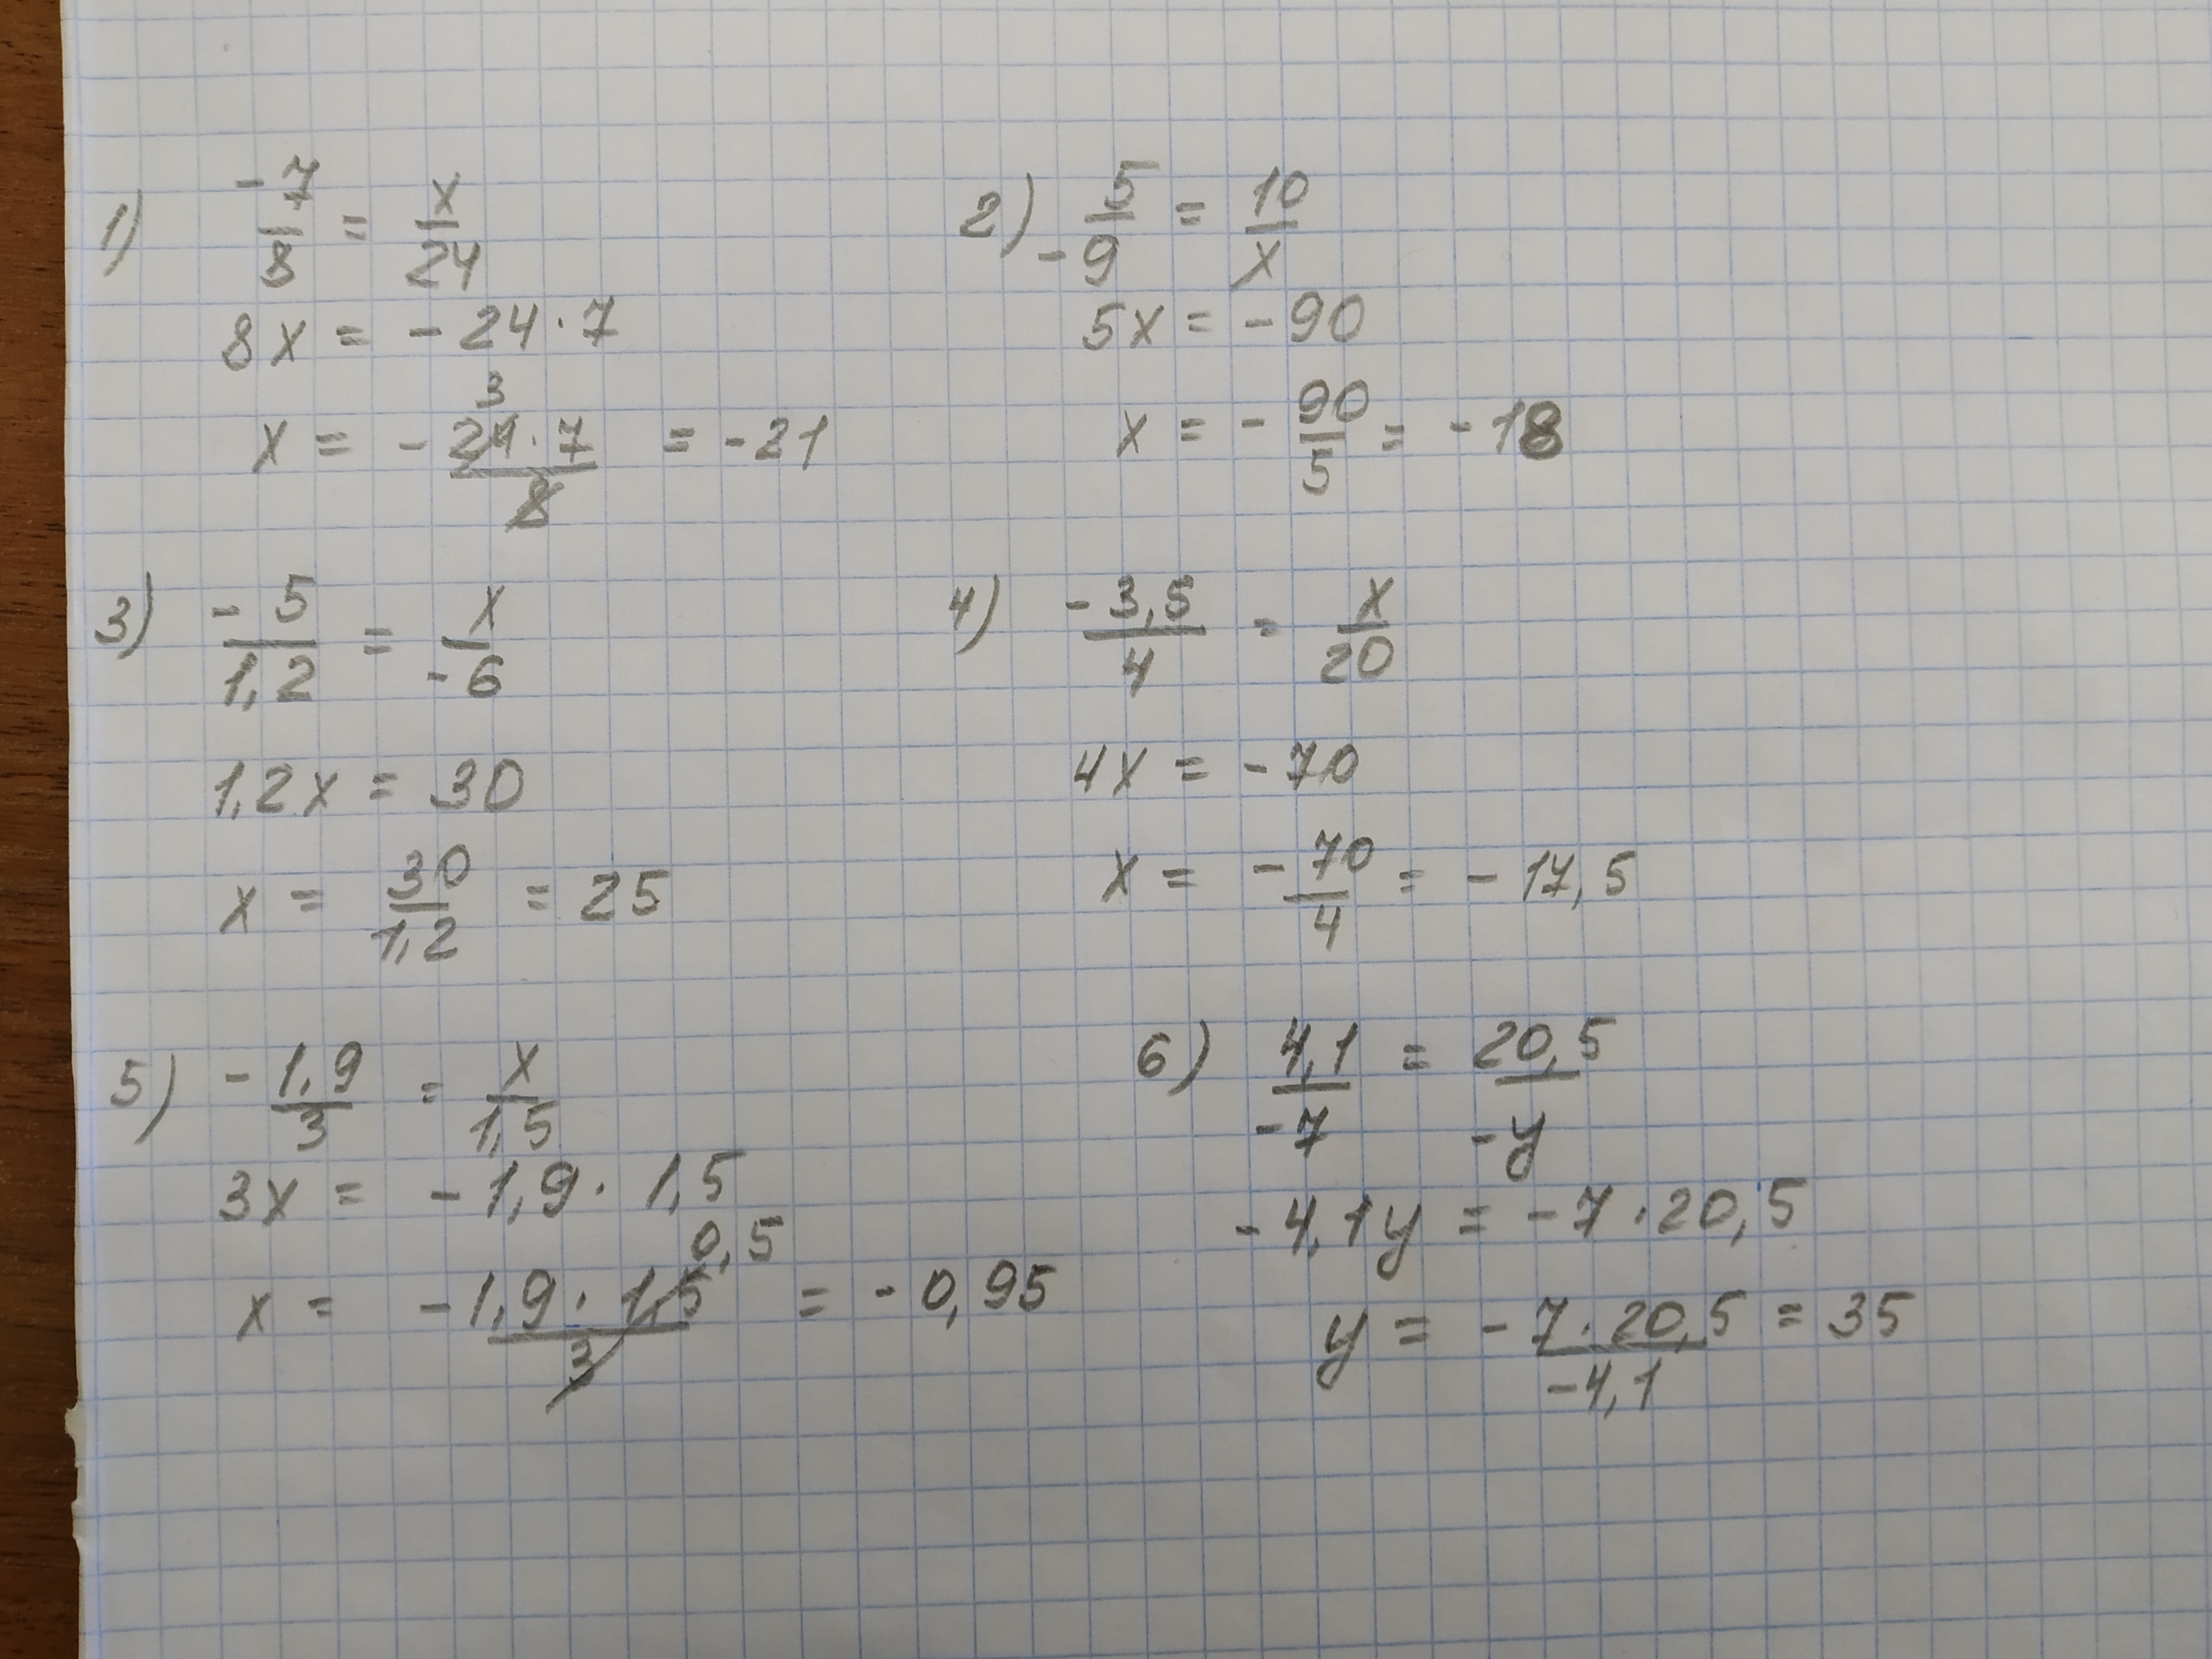 1) -7/8 = x/24
8x = -24·7
x = -24·7/8 = -21
3
2) 5/-9 = 10/x
5x = -90
x = -90/5 = -18
3) -5/1,2 = x/-6
1,2x = 30
x = 30/1,2 = 25
4) -3,5/4 = x/20
4x = -70
x = -70/4 = -17,5
5) -1,9/3 = x/1,5
3x = -1,9·1,5
0,5
x = -1,9·1,5/3 = -0,95
6) 4,1/-7 = 20,5/-y
-4,1y = -7·20,5
y = -7·20,5/-4,1 = 35